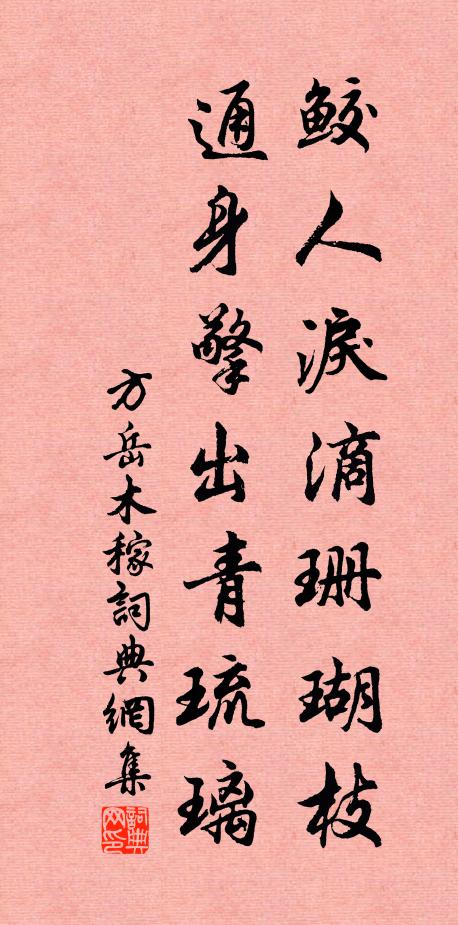 鲛人淚滴珊瑚枝
通身擎出青琉璃
方岳木稼詞典網集
詞典网印